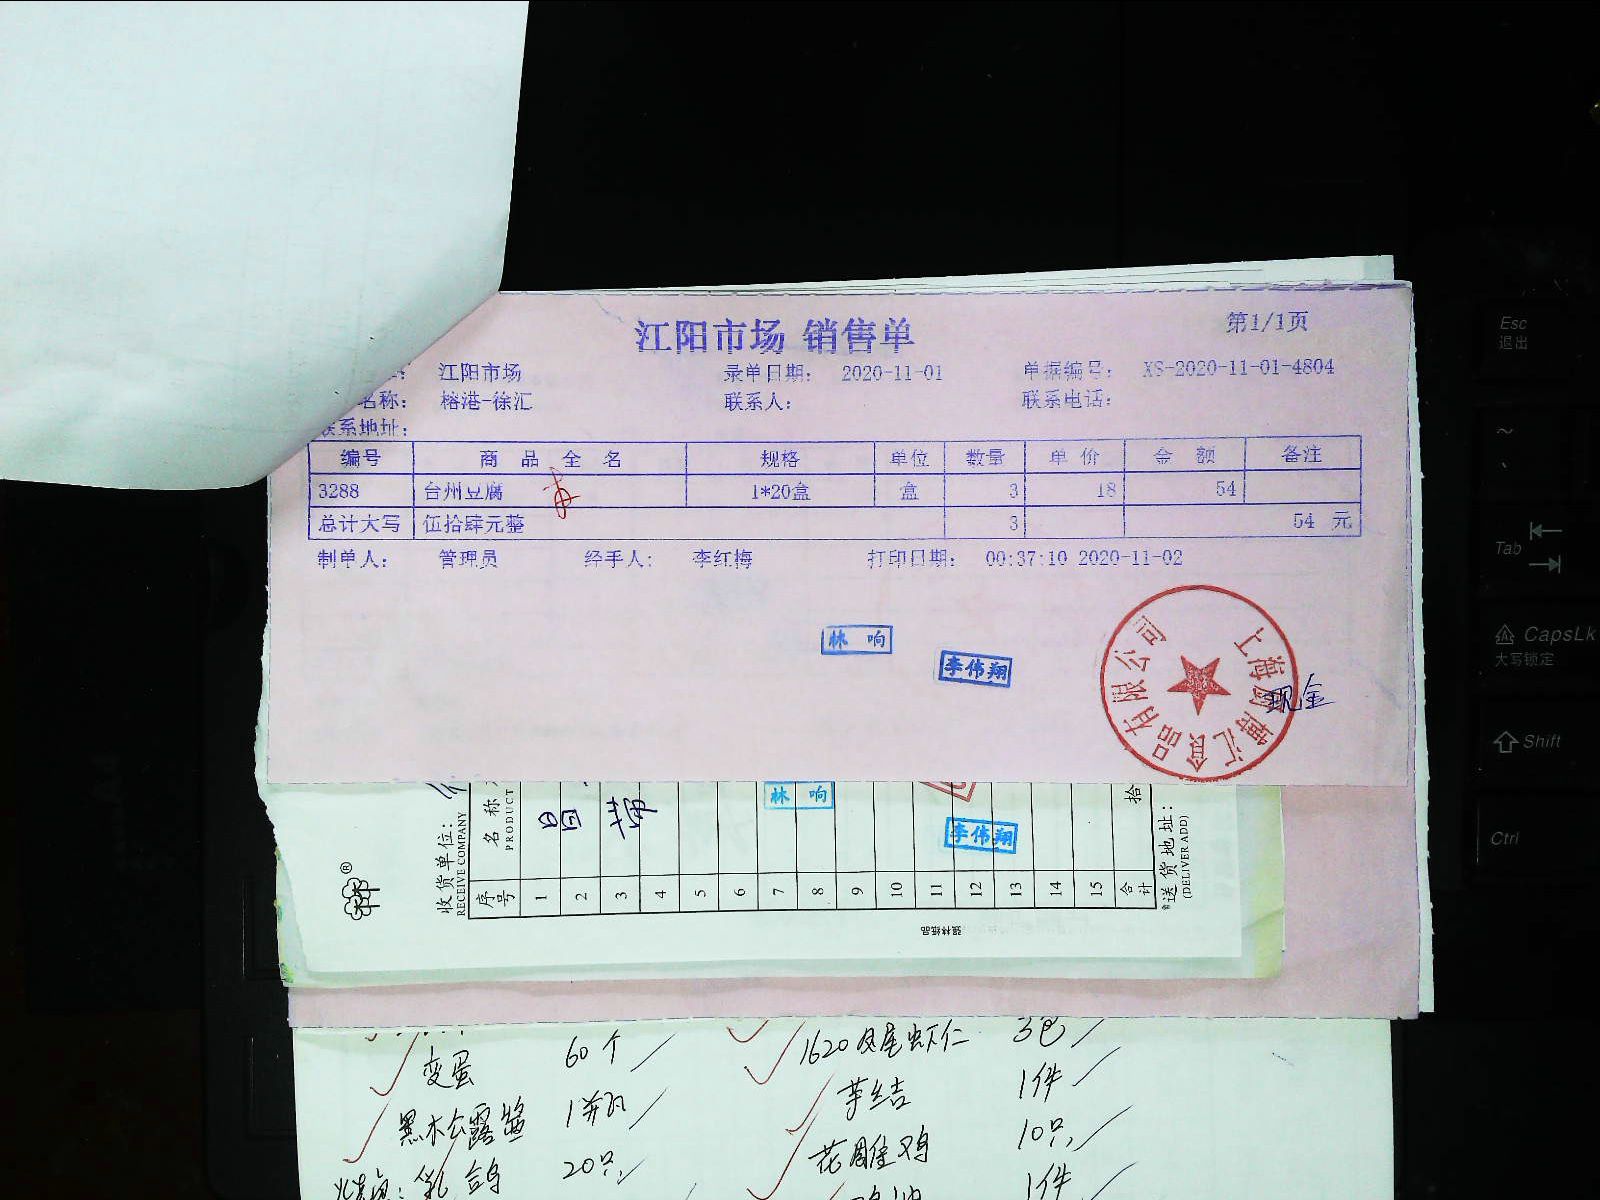 江阳市场 销售单
第1/1页
江阳市场 录单日期: 2020-11-01 单据编号: XS-2020-11-01-4804
名称: 榕港-徐汇 联系人: 联系电话:
联系地址:
编号 商品全名 规格 单位 数量 单价 金额 备注
3288 台州豆腐 1*20盒 盒 3 18 54
总计大写 伍拾肆元整 3 54 元
制单人: 管理员 经手人: 李红梅 打印日期: 00:37:10 2020-11-02
林响
李伟翔
现金
收货单位:
RECEIVE COMPANY
名称
PRODUCT
序号 1 2 3 4 5 6 7 8 9 10 11 12 13 14 15 合计
拾
送货地址:
(DELIVER ADD)
林响
李伟翔
强林纸品
变蛋 60个
1620凤尾虾仁 3包
1件
花雕鸡 10只
乳鸽 20只
1件
Esc
退出
Tab
CapsLk
大写锁定
Shift
Ctrl